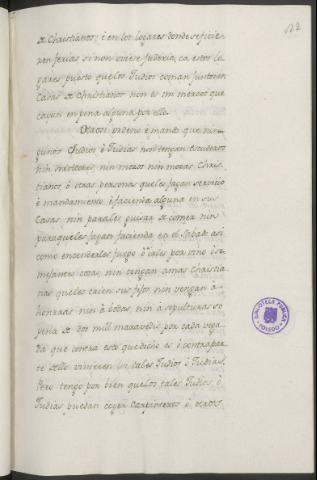 122
de Christianos; é en los logares donde se ficie-
ren ferias si non oviere juderia; ca estos lo-
gares puesto que los Judios coman juntos en
Casas de Christianos non es mi merced que
cayan en pena alguna por ello.
Otrosi ordeno é mando que nin-
gunos Judios é Judias non tengan escuderos
nin servidores, nin mozos nin mozas Chris-
tianos ó otras personas que les fagan servicio
é mandamiento, é facienda alguna en sus
Casas nin para les guisar de comer nin
para que les fagan facienda en el Sabado así
como encenderles fuego ó irles por vino é se-
mejantes cosas nin tengan amas Christia-
nas que les crien sus fijos nin vengan á
honrras nin á bodas nin á sepulturas so
pena de dos mill maravedis por cada vega-
da que contra esto que dicho es ó contra par-
te dello vinieren los tales Judios ó Judias.
Pero tengo por bien que los tales Judios, ó
Judias puedan coger Carpinteros ó otros
BIBLIOTECA PUBLICA
TOLEDO